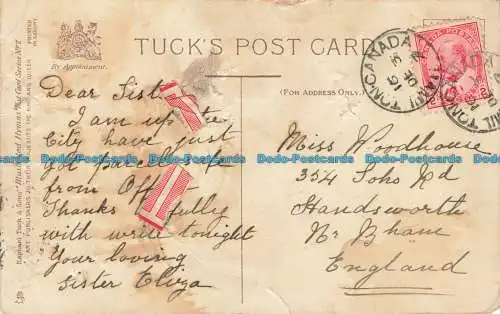 TUCK'S POST CARD
By Appointment.
(FOR ADDRESS ONLY.)
CANADA POSTAGE
HAMILTON CANADA
Dear Sister
I am up the
City have just
got
from Off
Thanks fully
with write tonight
Your loving
sister Eliza
Miss Woodhouse
354 Soho Rd
Handsworth
Nr Bham
England
Raphael Tuck & Sons' "Illustrated Hymns" Post Card Series No
ART PUBLISHERS TO THEIR MAJESTIES THE KING AND QUEEN
PRINTED
IN SAXONY
Dodo-Postcards Dodo-Postcards Dodo-Postcards Dodo-Postcards